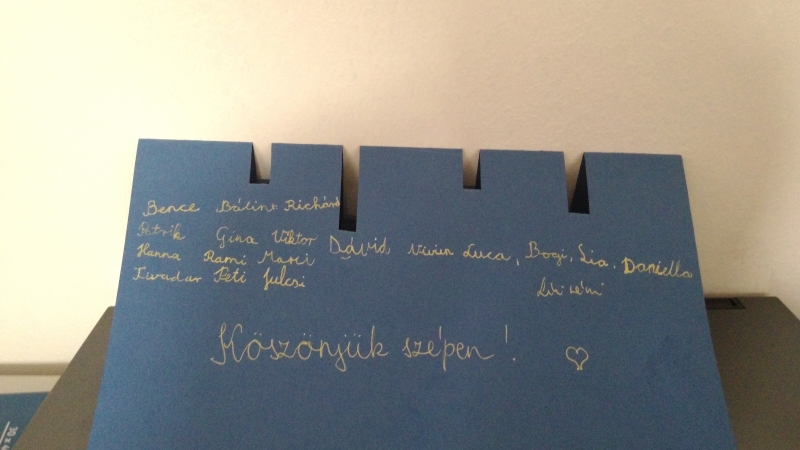 Bence Bálint Richárd
Patrik Gina Viktor Dávid, Vivien Luca, Bogi, Lia, Daniella
Hanna Rami Marci
Tivadar Peti Julcsi
Köszönjük szépen! ♡